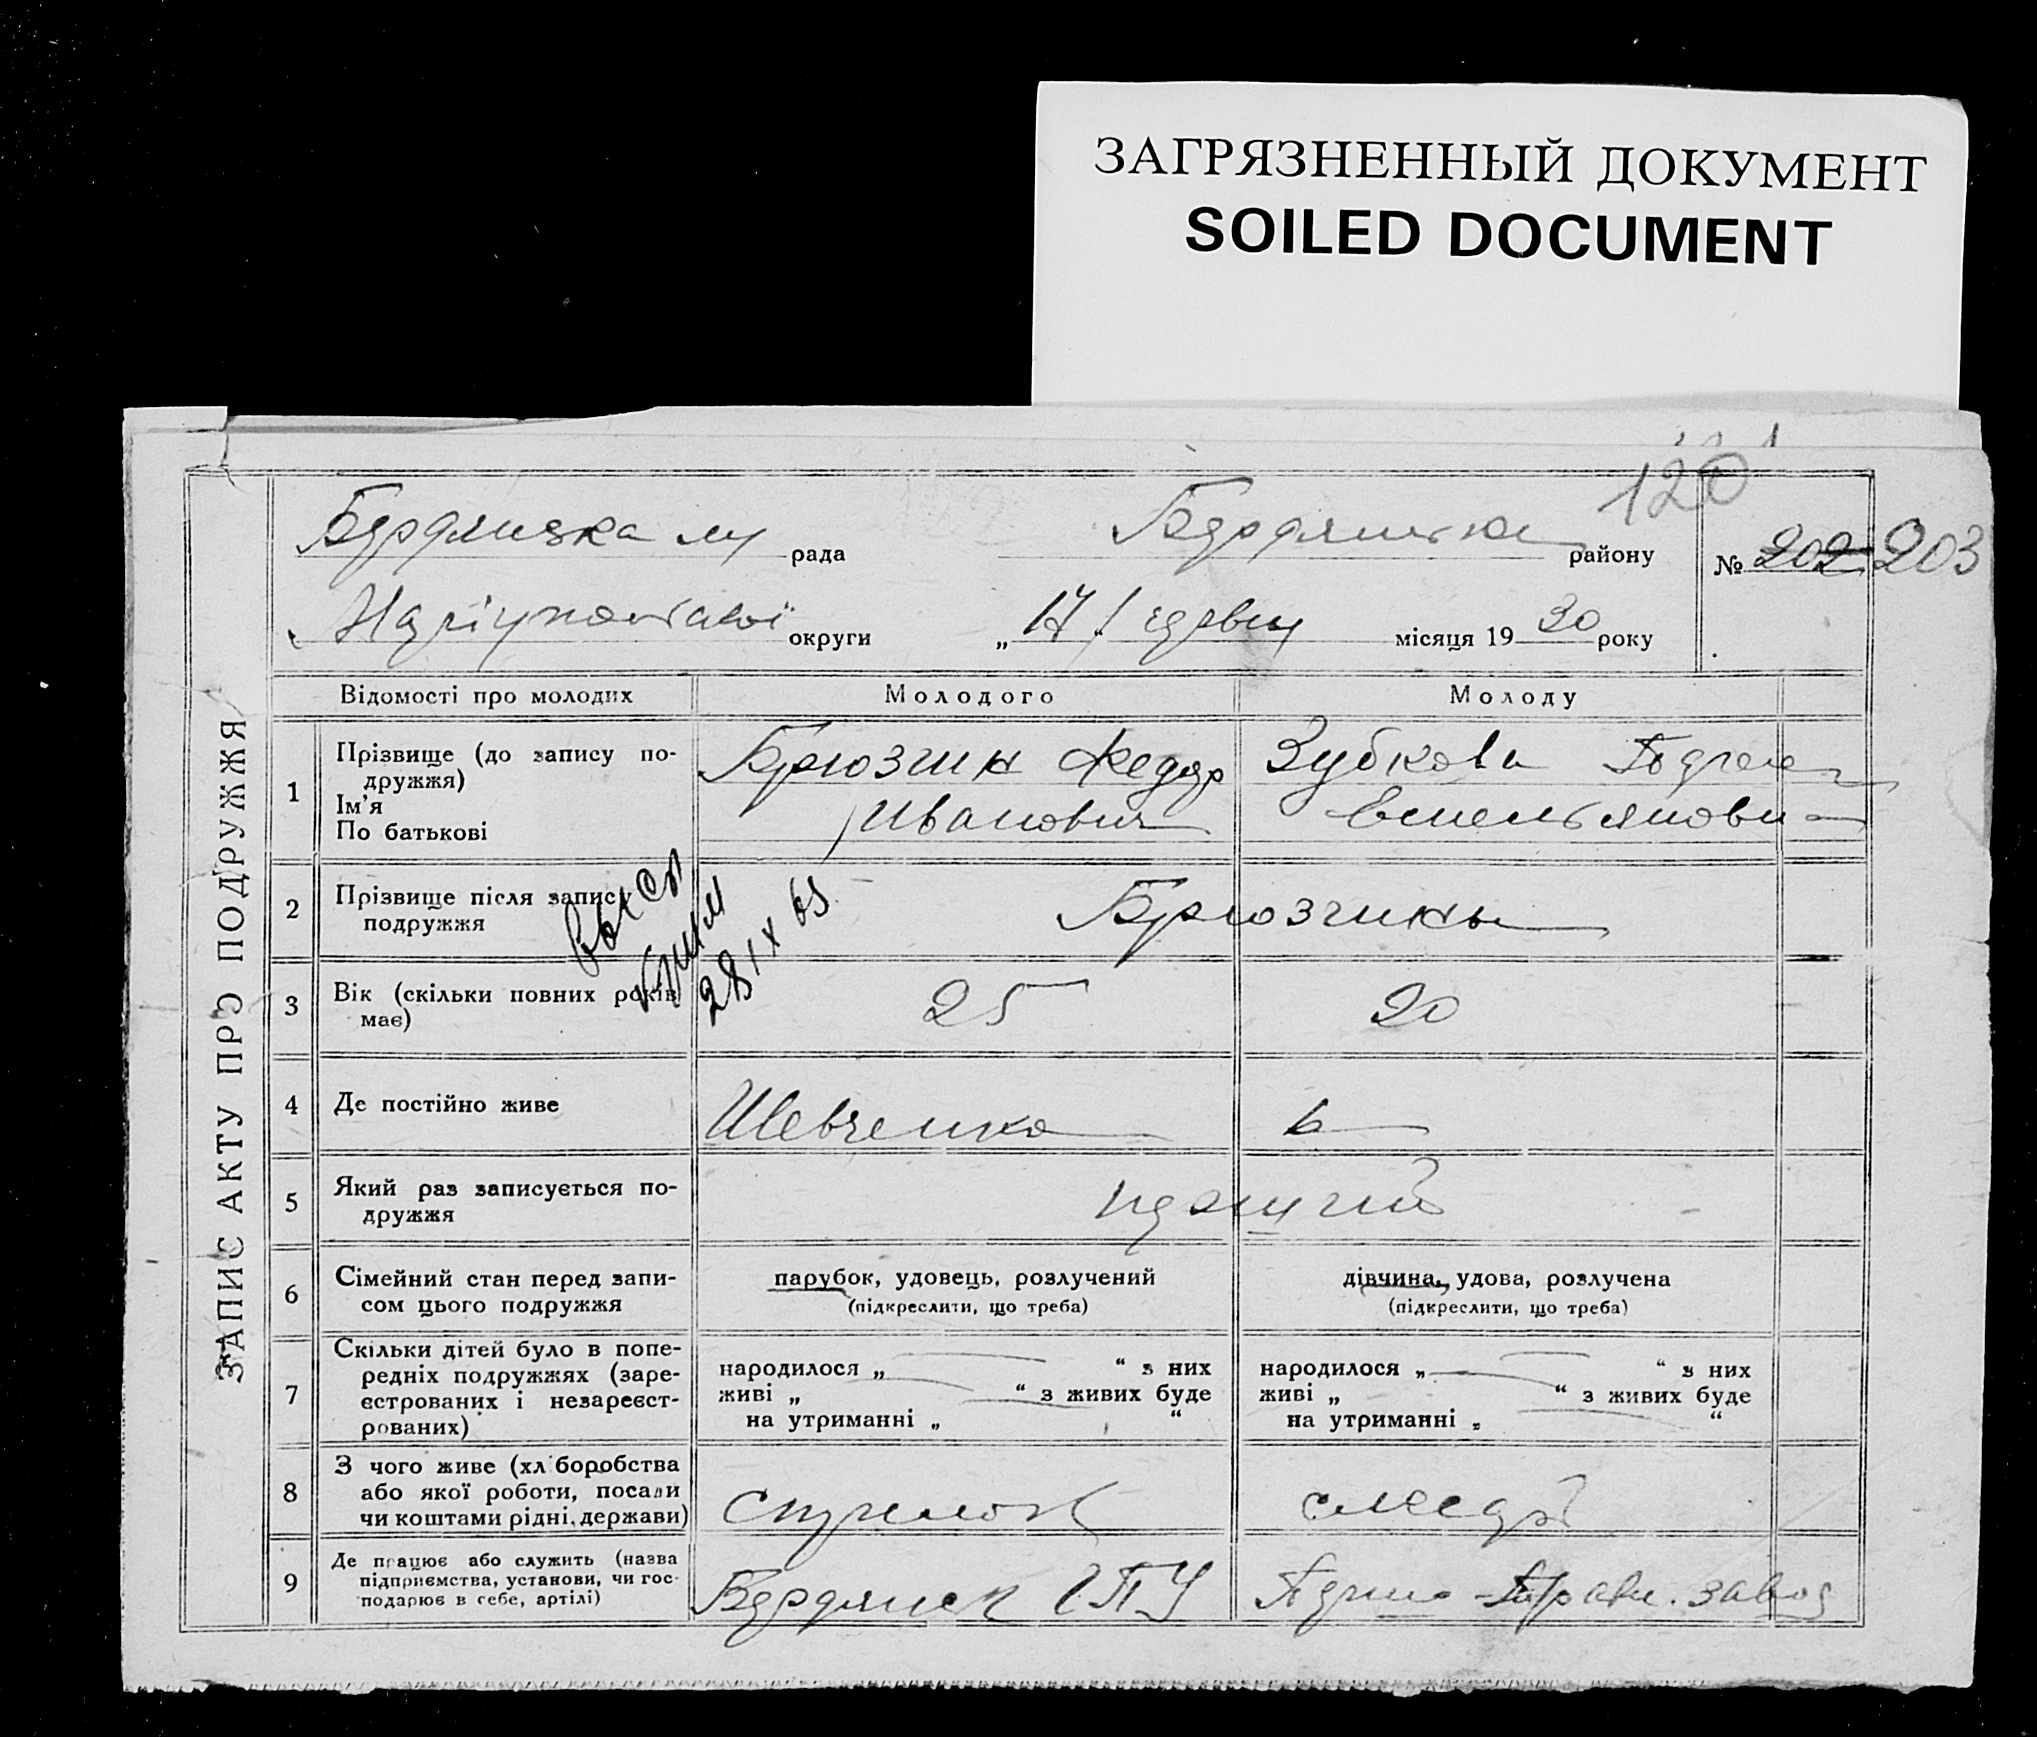 ЗАГРЯЗНЕННЫЙ ДОКУМЕНТ
SOILED DOCUMENT
120
рада
району
№ 202 203
округи
„ 17 " червня місяця 19 30 року
ЗАПИС АКТУ ПРО ПОДРУЖЖЯ
Відомості про молодих
Молодого
Молоду
1
Прізвище (до запису по-
дружжя)
Ім'я
По батькові
Брюзгин Федор
Иванович
Зубкова
Емельяновн
2
Прізвище після запису
подружжя
Брюзгины
28/IX 65
3
Вік (скільки повних років
має)
25
20
4
Де постійно живе
Шевченко
5
Який раз записується по-
дружжя
6
Сімейний стан перед запи-
сом цього подружжя
парубок, удовець, розлучений
(підкреслити, що треба)
дівчина, удова, розлучена
(підкреслити, що треба)
7
Скільки дітей було в попе-
редніх подружжях (заре-
єстрованих і незареєст-
рованих)
народилося „ “ з них
живі „ “ з живих буде
на утриманні „ “
народилося „ “ з них
живі „ “ з живих буде
на утриманні „ “
8
З чого живе (хліборобства
або якої роботи, посади
чи коштами рідні, держави)
9
Де працює або служить (назва
підприємства, установи, чи гос-
подарює в себе, артілі)
Бердянск ГПУ
завод